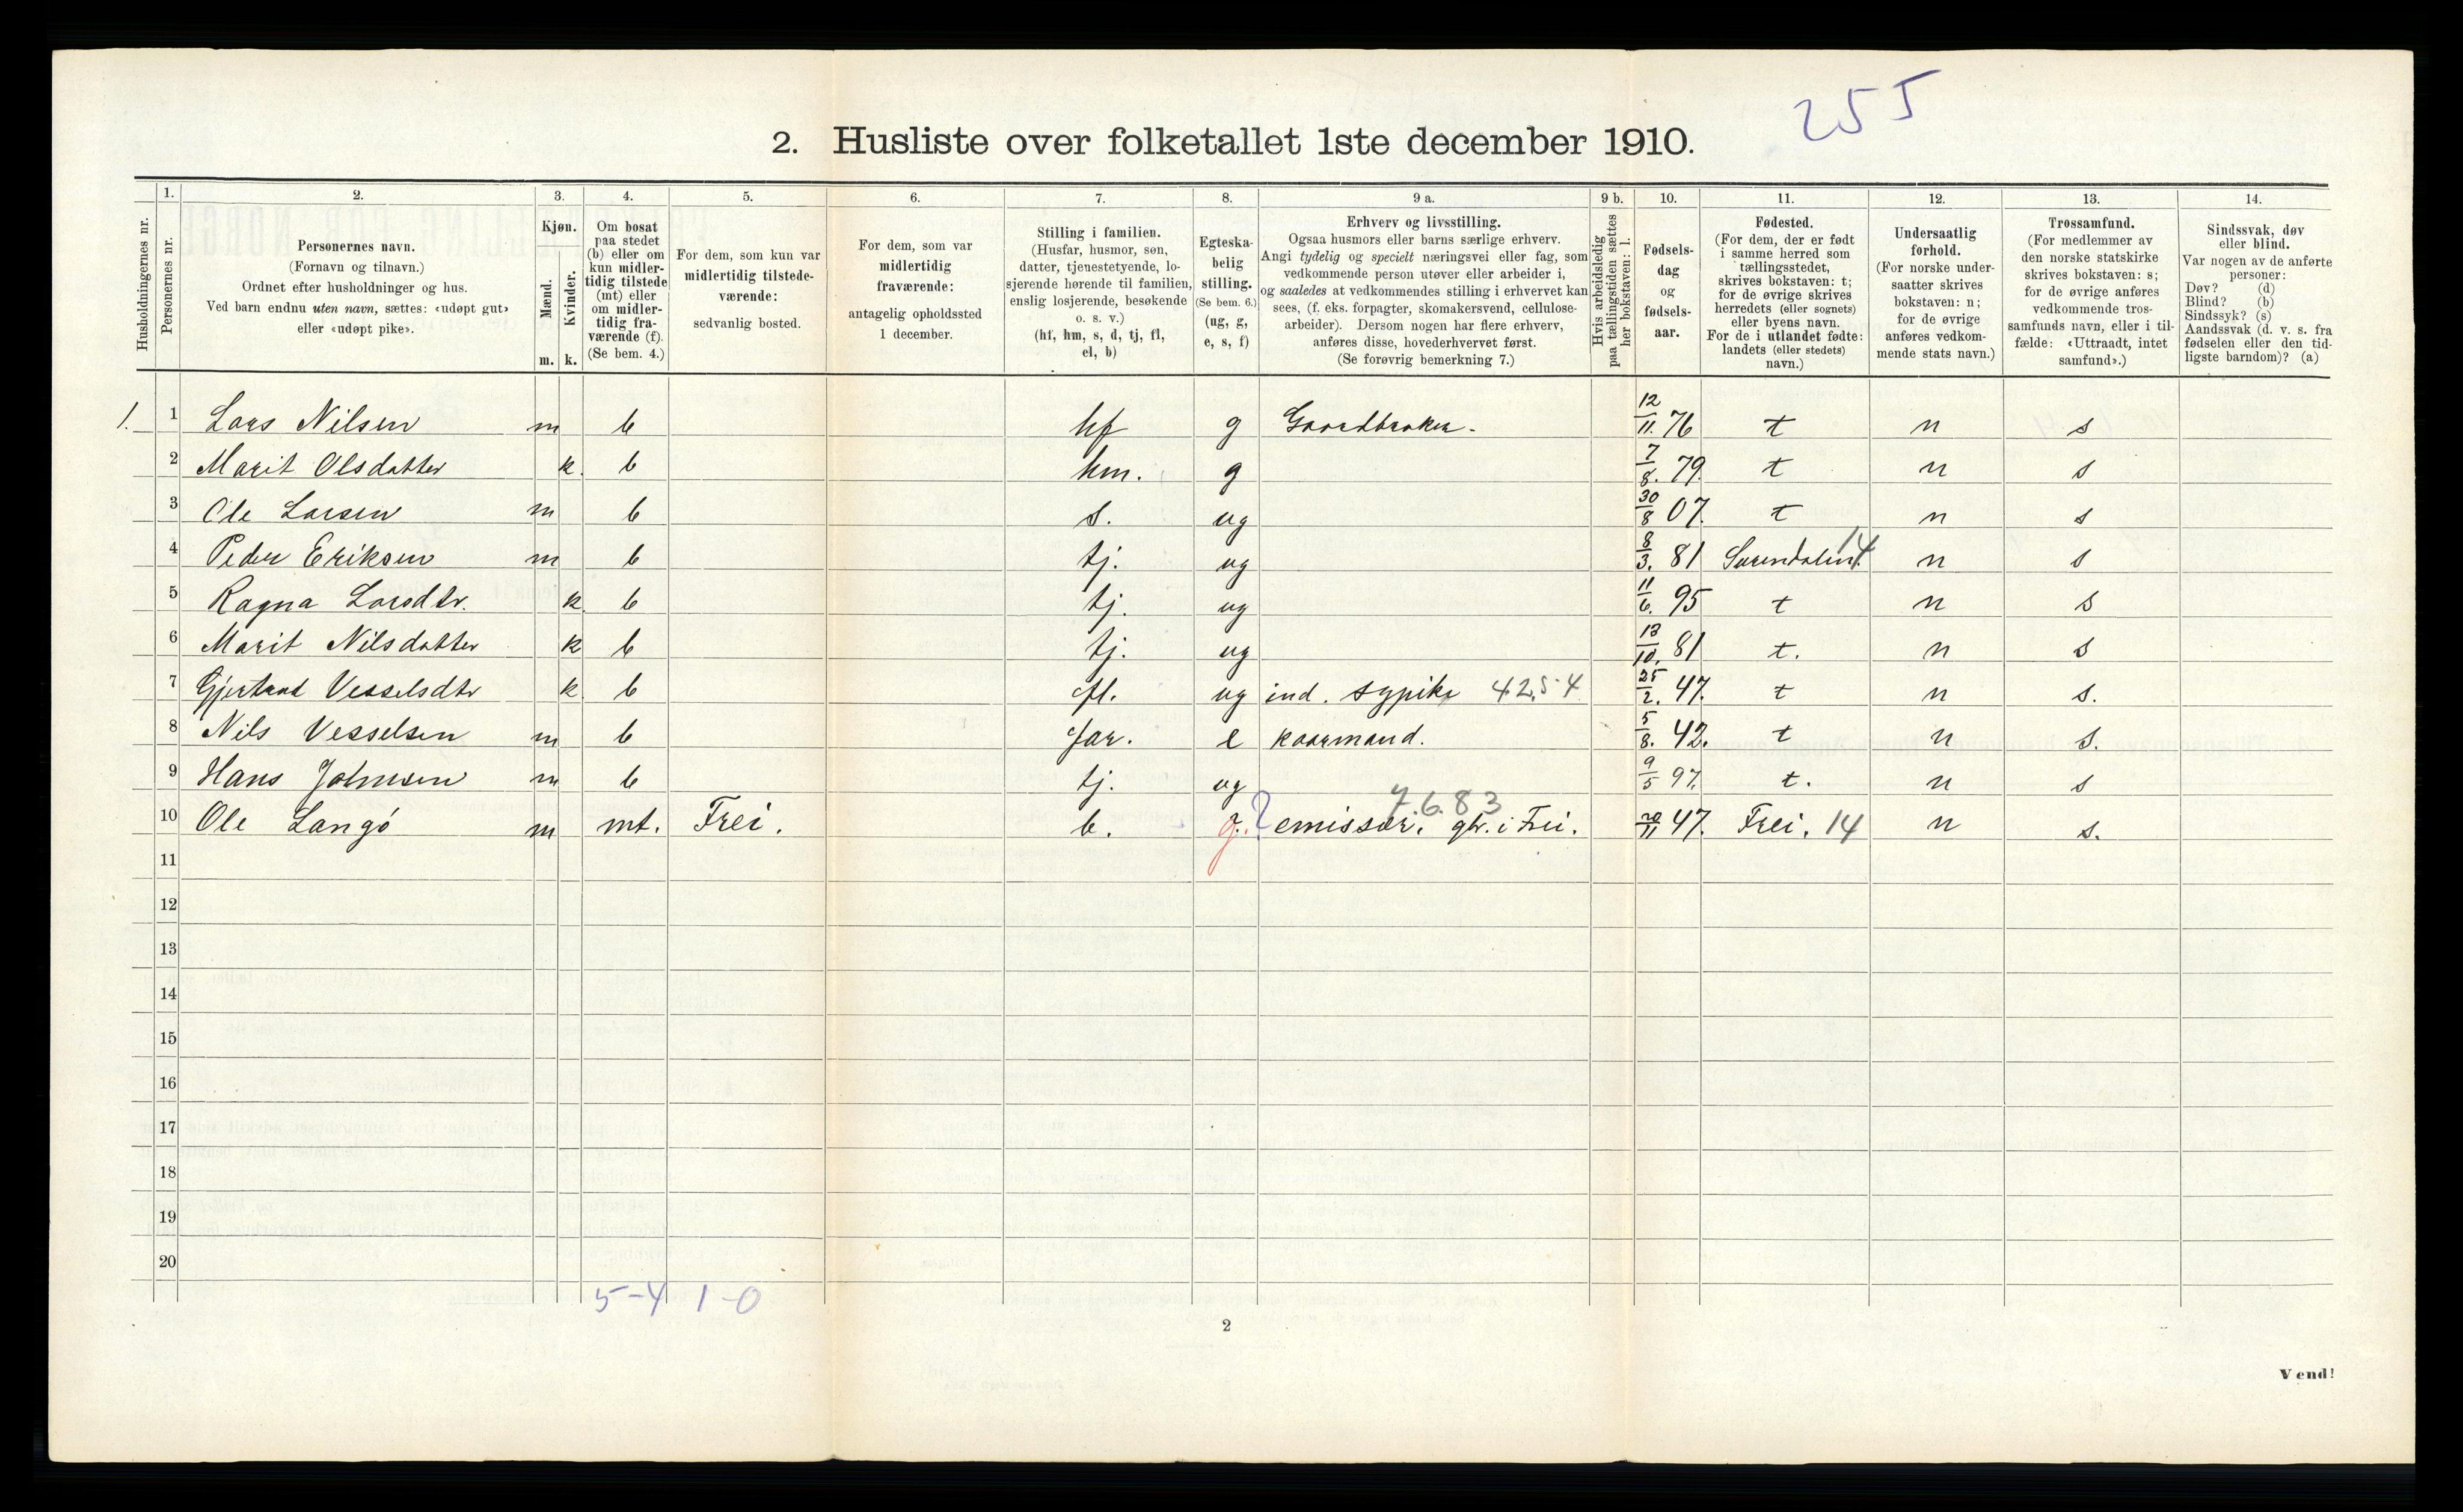 255
2. Husliste over folketallet 1ste december 1910.
Husholdningernes nr.
1.
Personernes nr.
2.
Personernes navn.
(Fornavn og tilnavn.)
Ordnet efter husholdninger og hus.
Ved barn endnu uten navn, sættes: «udøpt gut»
eller «udøpt pike».
3.
Kjøn.
Mænd.
Kvinder.
m. k.
4.
Om bosat
paa stedet
(b) eller om
kun midler-
tidig tilstede
(mt) eller
om midler-
tidig fra-
værende (f).
(Se bem. 4.)
5.
For dem, som kun var
midlertidig tilstede-
værende:
sedvanlig bosted.
6.
For dem, som var
midlertidig
fraværende:
antagelig opholdssted
1 december.
7.
Stilling i familien.
(Husfar, husmor, søn,
datter, tjenestetyende, lo-
sjerende hørende til familien,
enslig losjerende, besøkende
o. s. v.)
(hf, hm, s, d, tj, fl,
el, b)
8.
Egteska-
belig
stilling.
(Se bem. 6.)
(ug, g,
e, s, f)
9 a.
Erhverv og livsstilling.
Ogsaa husmors eller barns særlige erhverv.
Angi tydelig og specielt næringsvei eller fag, som
vedkommende person utøver eller arbeider i,
og saaledes at vedkommendes stilling i erhvervet kan
sees, (f. eks. forpagter, skomakersvend, cellulose-
arbeider). Dersom nogen har flere erhverv,
anføres disse, hovederhvervet først.
(Se forøvrig bemerkning 7.)
9 b.
Hvis arbeidsledig
paa tællingstiden sættes
her bokstaven: l.
10.
Fødsels-
dag
og
fødsels-
aar.
11.
Fødested.
(For dem, der er født
i samme herred som
tællingsstedet,
skrives bokstaven: t;
for de øvrige skrives
herredets (eller sognets)
eller byens navn.
For de i utlandet fødte:
landets (eller stedets)
navn.)
12.
Undersaatlig
forhold.
(For norske under-
saatter skrives
bokstaven: n;
for de øvrige
anføres vedkom-
mende stats navn.)
13.
Trossamfund.
(For medlemmer av
den norske statskirke
skrives bokstaven: s;
for de øvrige anføres
vedkommende tros-
samfunds navn, eller i til-
fælde: «Uttraadt, intet
samfund».)
14.
Sindssvak, døv
eller blind.
Var nogen av de anførte
personer:
Døv? (d)
Blind? (b)
Sindssyk? (s)
Aandssvak (d. v. s. fra
fødselen eller den tid-
ligste barndom)? (a)
1. 1 Lars Nilsen m b hf g Gaardbruker. 12/11. 76 t n s
2 Marit Olsdatter k. b hm. g 7/8. 79. t n s
3 Ole Larsen m b s. ug 30/8 07. t n s
4 Peder Eriksen m b tj. ug 8/3. 81 Surendalen. 14 n s
5 Ragna Larsdtr. k. b tj. ug 11/6. 95 t n s
6 Marit Nilsdatter k b tj. ug 13/10. 81 t. n s
7 Gjertrud Vesselsdtr k. b fl. ug ind. sypike 4.2.5.4 25/2. 47. t n s.
8 Nils Vesselsen m b far. e kaarmand. 5/8. 42. t n s.
9 Hans Johnsen m b tj. ug 9/5 97. t. n s
7.6.83
10 Ole Langø m mt. Frei. b. g. ? emissær. gbr. i Frei. 20/11 47. Frei. 14 n s.
11
12
13
14
15
16
17
18
19
20
5-4 1-0
2
Vend!